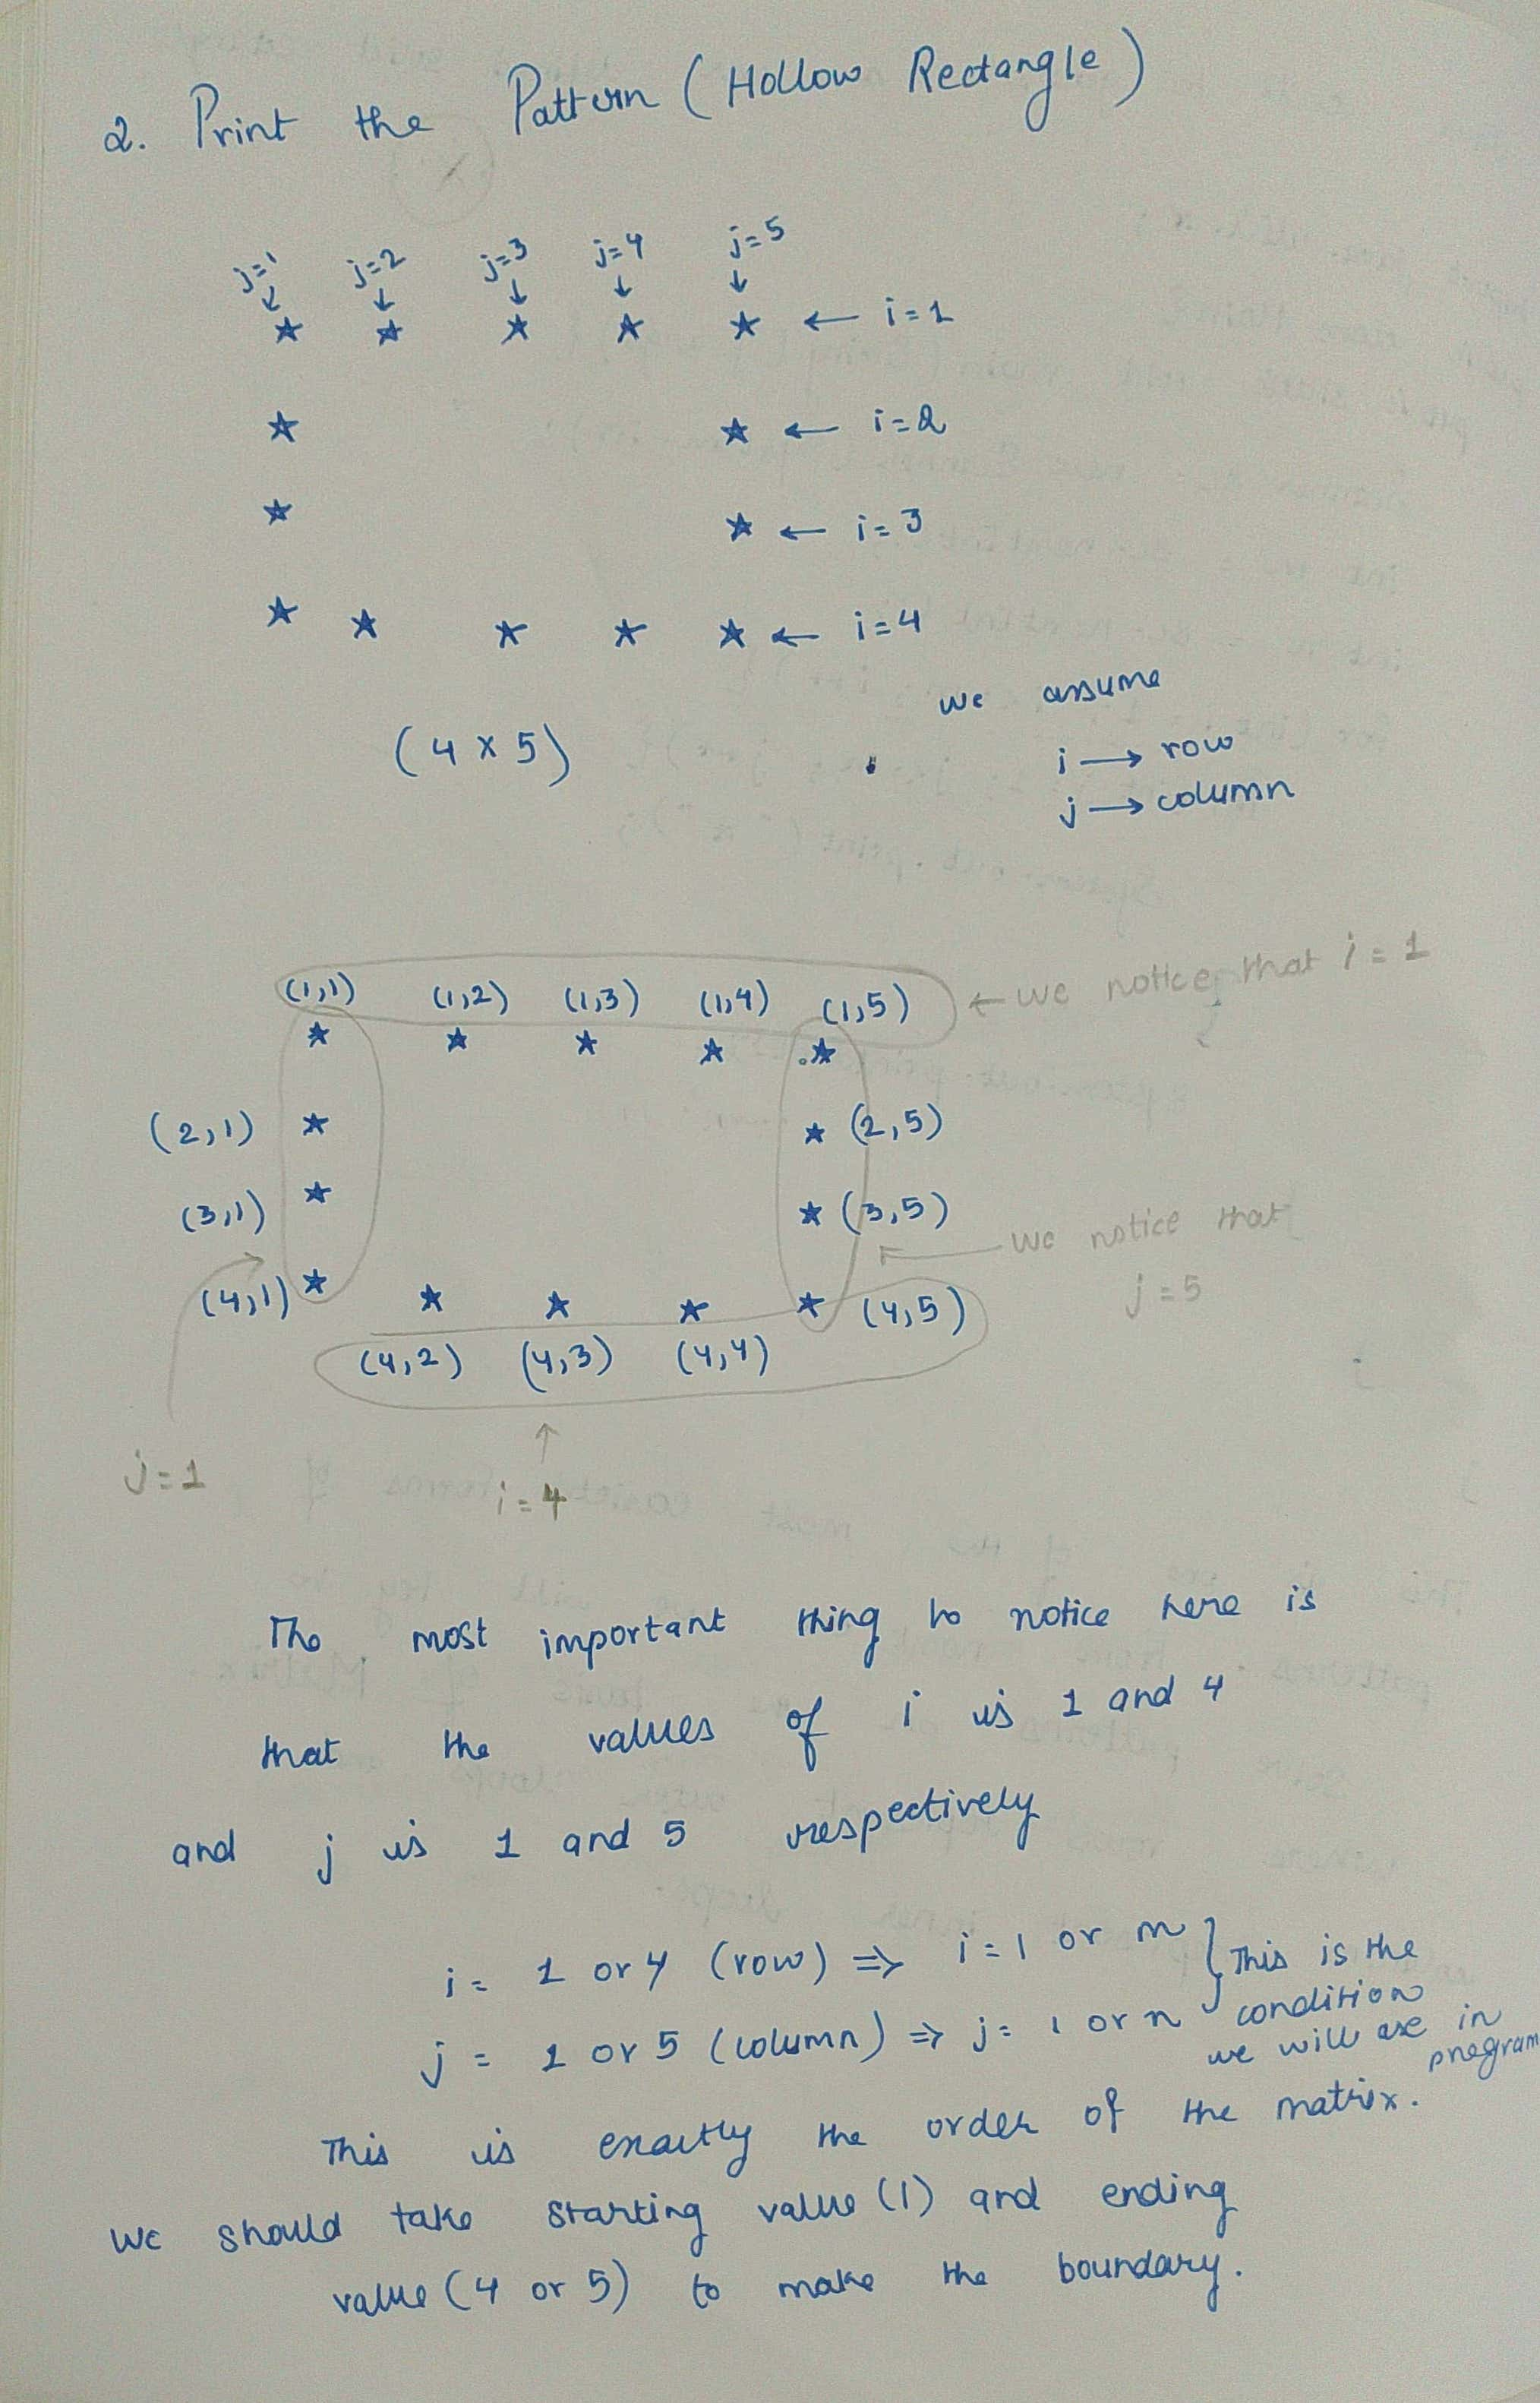 2. Print the Pattern (Hollow Rectangle)
j=1 j=2 j=3 j=4 j=5
↓ ↓ ↓ ↓ ↓
* * * * * ← i=1
* * ← i=2
* * ← i=3
* * * * * ← i=4
(4 x 5)
we assume
i → row
j → column
(1,1) (1,2) (1,3) (1,4) (1,5) ← we notice that i = 1
* * * * *
(2,1) * * (2,5)
(3,1) * * (3,5)
we notice that
j = 5
(4,1) * * * * * (4,5)
(4,2) (4,3) (4,4)
j = 1
↑
i = 4
The most important thing to notice here is
that the values of i is 1 and 4
and j is 1 and 5 respectively
i = 1 or 4 (row) ⇒ i = 1 or m } This is the
j = 1 or 5 (column) ⇒ j = 1 or n condition
we will use in
program
This is exactly the order of the matrix.
We should take starting value (1) and ending
value (4 or 5) to make the boundary.